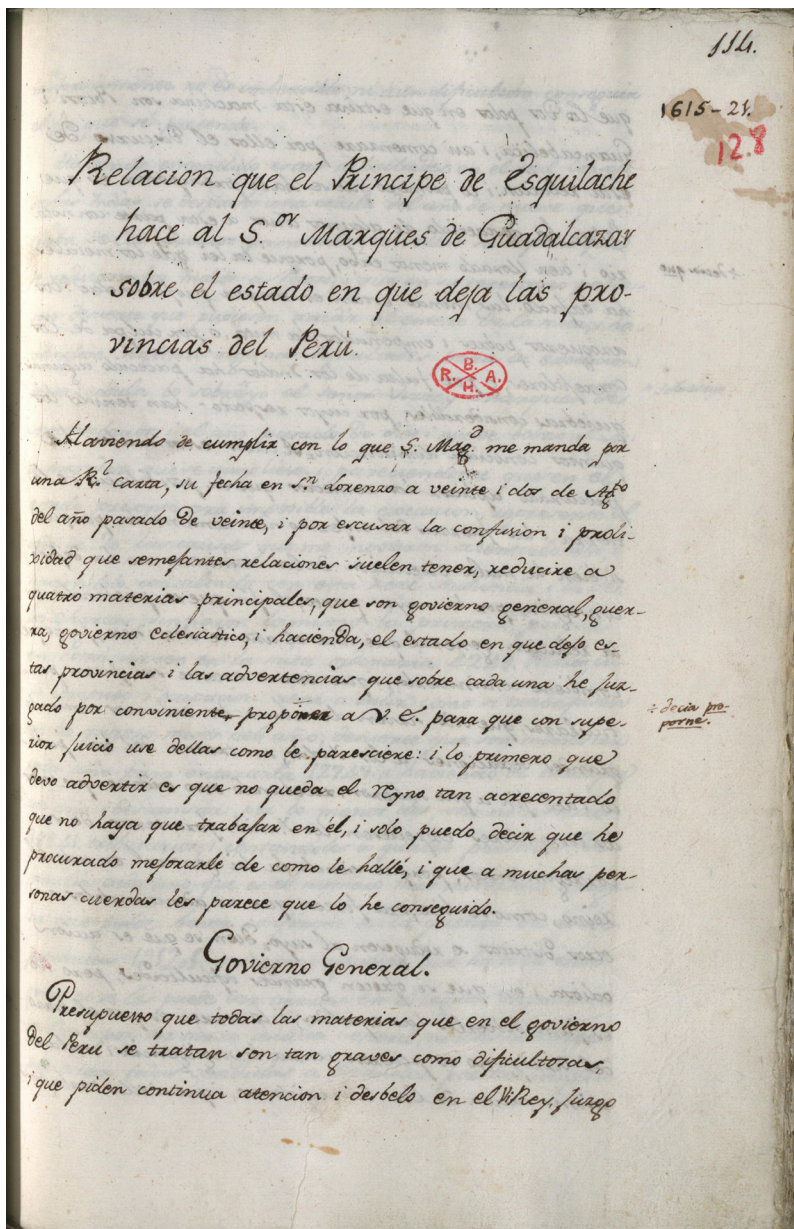 114.
1615-21.
12.8
Relacion que el Principe de Esquilache
hace al S.or Marques de Guadalcazar
sobre el estado en que deja las pro-
vincias del Perù.
B.
R. A.
H.
Haviendo de cumplir con lo que S. Mag.d me manda por
una R.l carta, su fecha en S.n Lorenzo a veinte i dos de Ag.to
del año pasado de veinte, i por escusar la confusion i proli-
xidad que semejantes relaciones suelen tener, reducire a
quatro materias principales, que son govierno general, guer-
ra, govierno eclesiastico, i hacienda, el estado en que dejo es-
tas provincias i las advertencias que sobre cada una he juz-
gado por conviniente, proponer a V. E. para que con supe-
rior juicio use dellas como le paresciere: i lo primero que
devo advertir es que no queda el reyno tan acrecentado
que no haya que trabajar en él, i solo puedo decir que he
procurado mejorarle de como le hallé, i que a muchas per-
sonas cuerdas les parece que lo he conseguido.
÷ decia pro-
porne.
Govierno General.
Presupuesto que todas las materias que en el govierno
del Perù se tratan son tan graves como dificultosas,
i que piden continua atencion i desbelo en el ViRey, juzgo